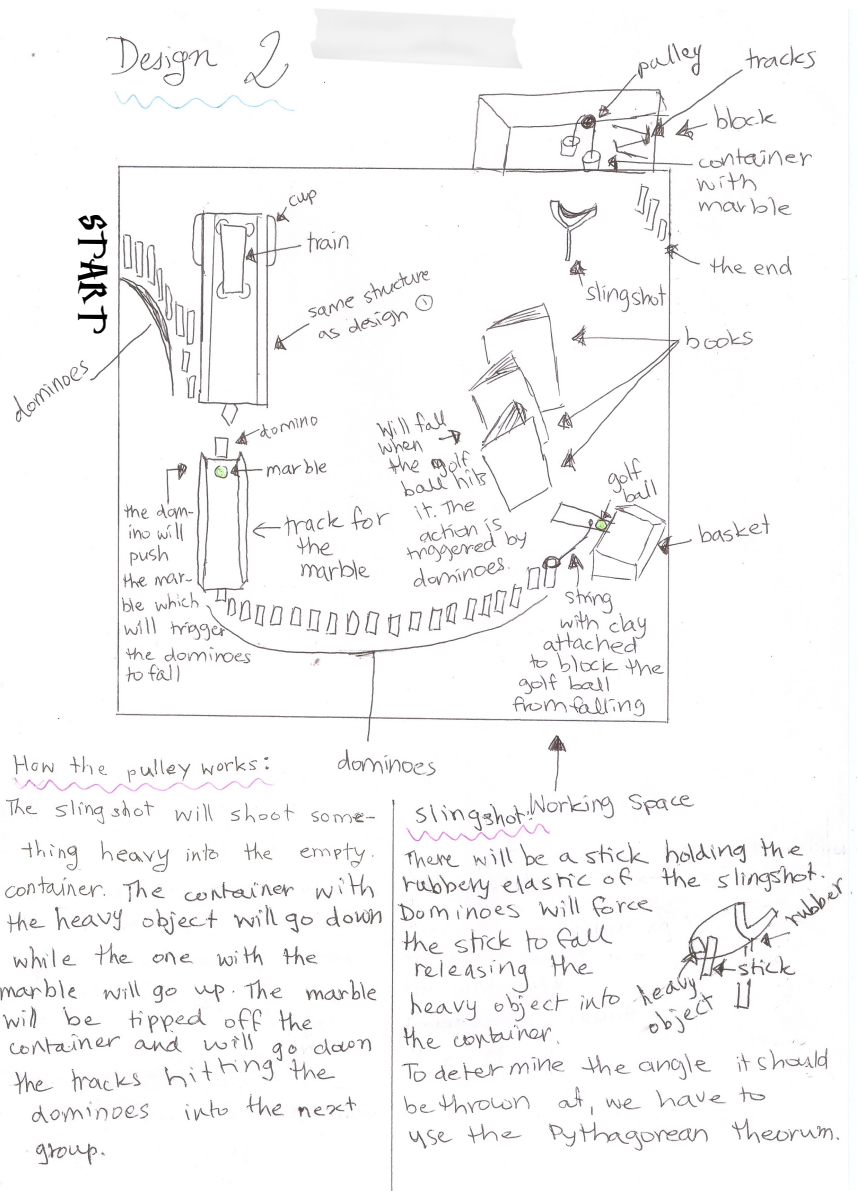 Design 2
pulley
tracks
block
container
with
marble
the end
slingshot
books
START
cup
train
same structure
as design ①
dominoes
domino
marble
the dom-
ino will
push
the mar-
ble which
will trigger
the dominoes
to fall
track for
the
marble
Will fall
when
the golf
ball hits
it. The
action is
triggered by
dominoes.
golf
ball
basket
string
with clay
attached
to block the
golf ball
from falling
dominoes
How the pulley works:
The slingshot will shoot some-
thing heavy into the empty.
container. The container with
the heavy object will go down
while the one with the
marble will go up. The marble
will be tipped off the
container and will go down
the tracks hitting the
dominoes into the next
group.
Working Space
slingshot:
There will be a stick holding the
rubbery elastic of the slingshot.
Dominoes will force
the stick to fall
releasing the
heavy object into
the container.
rubber
stick
heavy
object
To determine the angle it should
be thrown at, we have to
use the Pythagorean theorum.